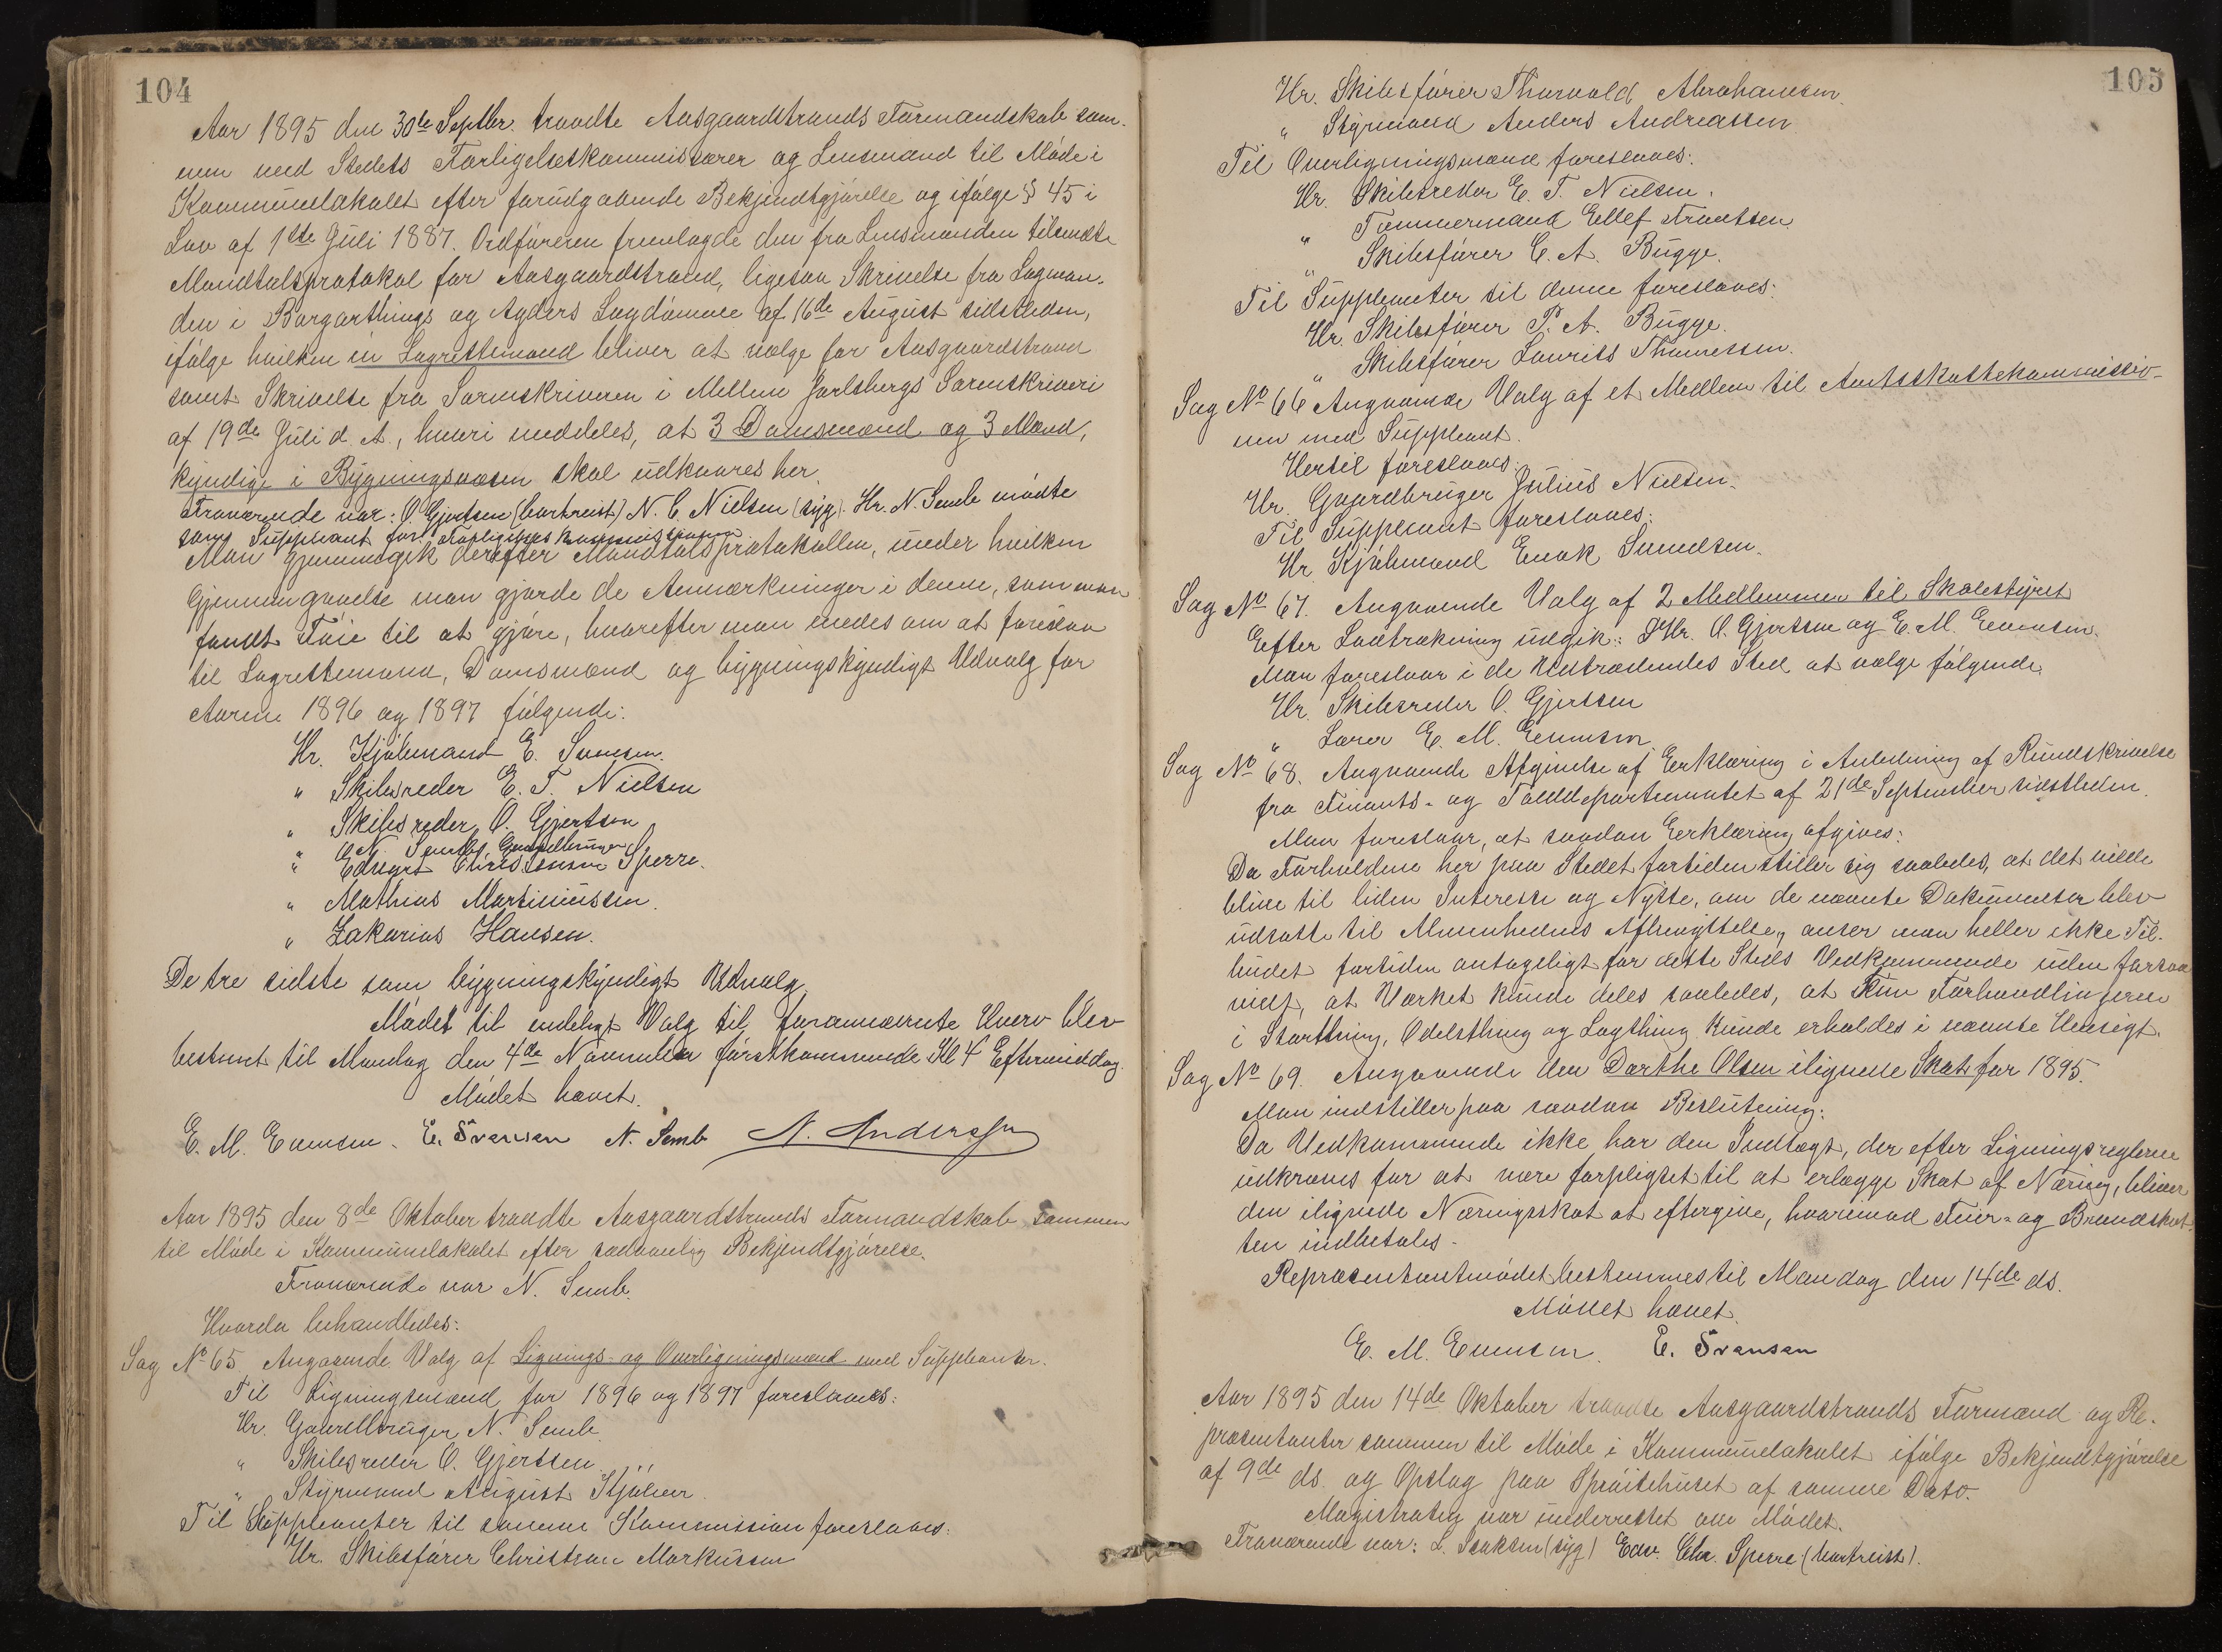 104
Aar 1895 den 30te Septbr. traadte Aasgaardstrands Formandskab sam-
men med Stedets Forligelseskommissærer og Lensmand til Møde i
Kommunelokalet efter forudgaaende Bekjendtgjørelse og ifølge § 45 i
Lov af 1ste Juli 1887. Ordføreren fremlagde den fra Lensmanden tilsendte
Mandtalsprotokol for Aasgaardstrand, ligesaa Skrivelse fra Lagman-
den i Borgarthings og Agders Lagdømme af 16de August sidstleden,
ifølge hvilken en Lagrettemand bliver at vælge for Aasgaardstrand
samt Skrivelse fra Sorenskriveren i Mellem Jarlsbergs Sorenskriveri
af 19de Juli d. A., hvori meddeles, at 3 Domsmænd og 3 Mænd,
kyndige i Bygningsvæsen skal udkaares her.
Fraværende var: O. Gjertsen (bortreist) N. C. Nielsen (syg). Hr. N. Semb mødte
som Suppleant for Forligelseskommissionen
Man gjennemgik derefter Mandtalsprotokollen, under hvilken
Gjennemgaaelse man gjorde de Anmærkninger i denne, som man
fandt Føie til at gjøre, hvorefter man enedes om at foreslaa
til Lagrettemænd, Domsmænd og bygningskyndigt Udvalg for
Aarene 1896 og 1897 følgende:
Hr. Kjøbmand E. Svensen.
" Skibsreder E. T. Nielsen
" Skibsreder O. Gjertsen
" N. Semb, Gaardbruger
" Edvard Christensen Sperre.
" Mathias Martiniussen.
" Zakarias Hansen.
De tre sidste som bygningskyndigt Udvalg.
Mødet til endeligt Valg til forannævnte Hverv blev
bestemt til Mandag den 4de November førstkommende Kl 4 Eftermiddag.
Mødet hævet.
E. M. Evensen. E. Svensen N. Semb N. Anderssen
Aar 1895 den 8de Oktober traadte Aasgaardstrands Formandskab sammen
til Møde i Kommunelokalet efter sædvanlig Bekjendtgjørelse.
Fraværende var N. Semb.
Hvorda behandledes:
Sag No 65. Angaaende Valg af Lignings- og Overligningsmænd med Suppleanter.
Til Ligningsmænd for 1896 og 1897 foreslaaes:
Hr. Gaardbruger N. Semb
" Skibsreder O. Gjertsen
" Styrmand August Kjølner
Til Suppleanter til samme Kommission foreslaaes:
Hr. Skibsfører Christian Markussen
105
Hr. Skibsfører Thorvald Abrahamsen.
" Styrmand Anders Andreassen
Til Overligningsmænd foreslaaes:
Hr. Skibsreder E. T. Nielsen.
" Tømmermand Ellef Frantsen.
" Skibsfører C. A. Bugge.
Til Suppleanter til denne foreslaaes:
Hr. Skibsfører P. A. Bugge.
" Skibsfører Laurits Thoresen.
Sag No 66 Angaaende Valg af et Medlem til Amtsskattekommissio-
nen med Suppleant.
Hertil foreslaaes:
Hr. Gaardbruger Julius Nielsen.
Til Suppleant foreslaaes:
Hr. Kjøbmand Enok Svendsen.
Sag No 67. Angaaende Valg af 2 Medlemmer til Skolestyret
Efter Lodtrækning udgik: DHr. O. Gjertsen og E. M. Evensen.
Man foreslaar i de Udtrædendes Sted at vælge følgende.
Hr. Skibsreder O. Gjertsen
" Lærer E. M. Evensen
Sag No 68. Angaaende Afgivelse af Erklæring i Anledning af Rundskrivelse
fra Finants- og Tolddepartementet af 21de September sidstleden.
Man foreslaar, at saadan Erklæring afgives:
Da Forholdene her paa Stedet fortiden stiller sig saaledes, at det vilde
blive til liden Interesse og Nytte, om de nævnte Dokumenter blev
udsatte til Almenhedens Afbenyttelse, anser man heller ikke Til-
budet fortiden antageligt for dette Steds Vedkommende uden forsaa-
vidt, at Værket kunde deles saaledes, at Kun Forhandlingerne
i Storthing, Odelsthing og Lagthing kunde erholdes i nævnte Hensigt.
Sag No 69. Angaaende den Dorthe Olsen ilignede Skat for 1895.
Man indstiller paa saadan Beslutning:
Da Vedkommende ikke har den Indtægt, der efter Ligningsreglerne
udkræves for at være forpligtet til at erlægge Skat af Næring, bliver
den ilignede Næringsskat at eftergive, hvorimod Feier- og Brandskat-
ten indbetales.
Repræsentantmødet bestemmes til Mandag den 14de ds.
Mødet hævet.
E. M. Evensen. E. Svensen
Aar 1895 den 14de Oktober traadte Aasgaardstrands Formænd og Re-
præsentanter sammen til Møde i Kommunelokalet ifølge Bekjendtgjørelse
af 9de ds. og Opslag paa Sprøitehuset af samme Dato.
Magistraten var underrettet om Mødet.
Fraværende var: L. Isaksen (syg) Edv. Chr. Sperre (bortreist).